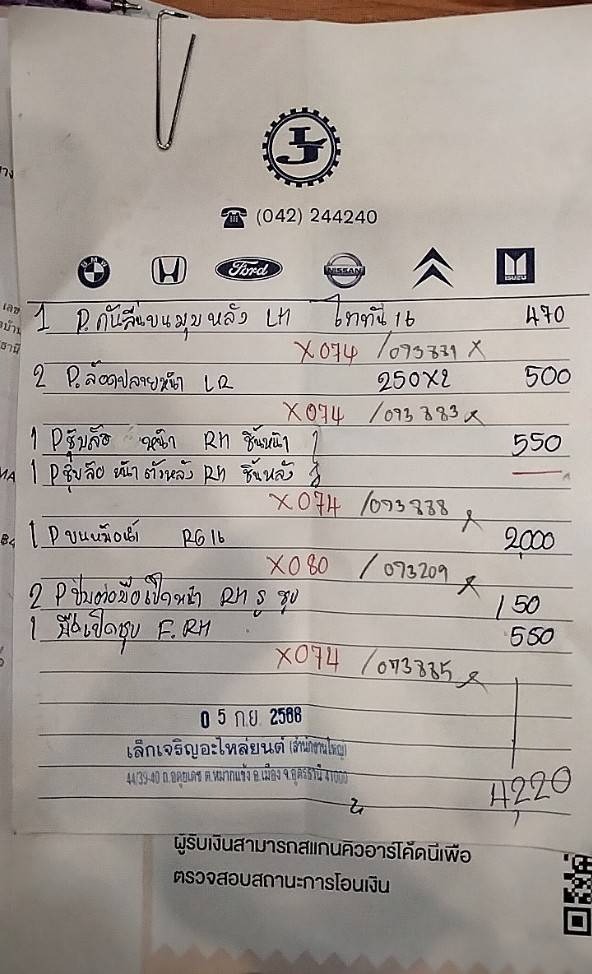 LJ
☎ (042) 244240
BMW Ford NISSAN ISUZU
1 P. กันลื่นบนมุมหลัง LH ไททัน 16 470
X074 /093881 X
2 P. ล้อคปลายหน้า LR 250X2 500
X074 /093883 X
1 P หน้า RH ชิ้นหน้า 550
1 P หน้า ตัวหลัง RH ชิ้นหลัง
X074 /093888 X
1 P บนหม้อน้ำ RG 16 2,000
X080 / 093209 X
2 P มือเปิดหน้า RH รู ชุบ 150
1 มือเปิดชุบ F. RH 550
X074 /093885 X
0 5 ก.ย. 2566
เล็กเจริญอะไหล่ยนต์ (สำนักงานใหญ่)
44/39-40 ถ.อดุยเดช ต.หมากแข้ง อ.เมือง จ.อุดรธานี 41000
4,220
ผู้รับเงินสามารถสแกนคิวอาร์โค้ดนี้เพื่อ
ตรวจสอบสถานะการโอนเงิน